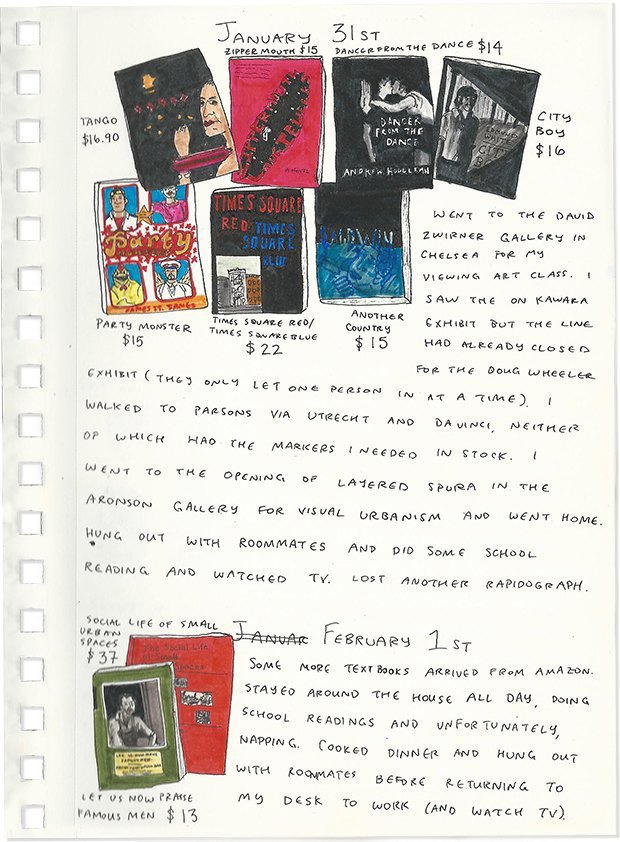 JANUARY 31ST
ZIPPER MOUTH $15
DANCER FROM THE DANCE $14
TANGO
$16.90
CITY
BOY
$16
DANCER
FROM THE
DANCE
ANDREW HOLLERAN
CITY
Party
JAMES ST. JAMES
TIMES SQUARE
RED TIMES
SQUARE
BLUE
BALDWIN
PARTY MONSTER
$15
TIMES SQUARE RED/
TIMES SQUARE BLUE
$22
ANOTHER
COUNTRY
$15
WENT TO THE DAVID
ZWIRNER GALLERY IN
CHELSEA FOR MY
VIEWING ART CLASS. I
SAW THE ON KAWARA
EXHIBIT BUT THE LINE
HAD ALREADY CLOSED
FOR THE DOUG WHEELER
EXHIBIT (THEY ONLY LET ONE PERSON IN AT A TIME). I
WALKED TO PARSONS VIA UTRECHT AND DAVINCI, NEITHER
OF WHICH HAD THE MARKERS I NEEDED IN STOCK. I
WENT TO THE OPENING OF LAYERED SPURA IN THE
ARONSON GALLERY FOR VISUAL URBANISM AND WENT HOME.
HUNG OUT WITH ROOMMATES AND DID SOME SCHOOL
READING AND WATCHED TV. LOST ANOTHER RAPIDOGRAPH.
SOCIAL LIFE OF SMALL
URBAN
SPACES
$37
The Social Life
of Small
Spaces
LET US NOW PRAISE
FAMOUS MEN
LET US NOW PRAISE
FAMOUS MEN $13
JANUAR FEBRUARY 1ST
SOME MORE TEXTBOOKS ARRIVED FROM AMAZON.
STAYED AROUND THE HOUSE ALL DAY, DOING
SCHOOL READINGS AND UNFORTUNATELY,
NAPPING. COOKED DINNER AND HUNG OUT
WITH ROOMMATES BEFORE RETURNING TO
MY DESK TO WORK (AND WATCH TV).